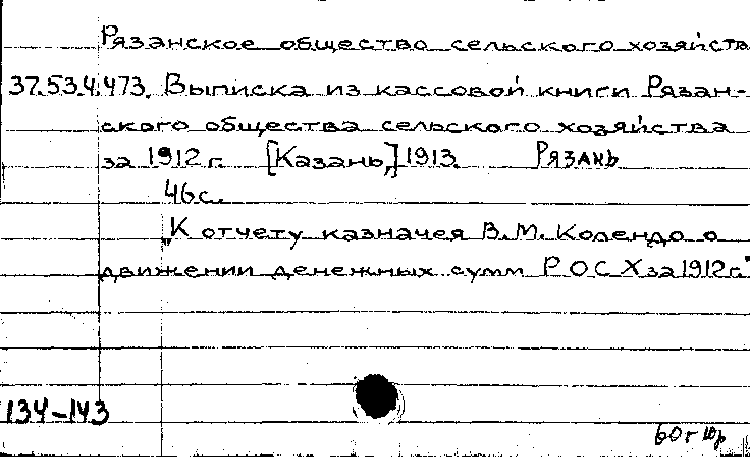 Рязанское общество сельского хозяйств
37.53.4.473. Выписка из кассовой книги Рязан-
ского общества сельского хозяйства
за 1912 г. [Казань,] 1913. Рязань
46 с.
„К отчету казначея В.М. Колендо о
движении денежных сумм Р О С Х за 1912 г."
134-143
60 г